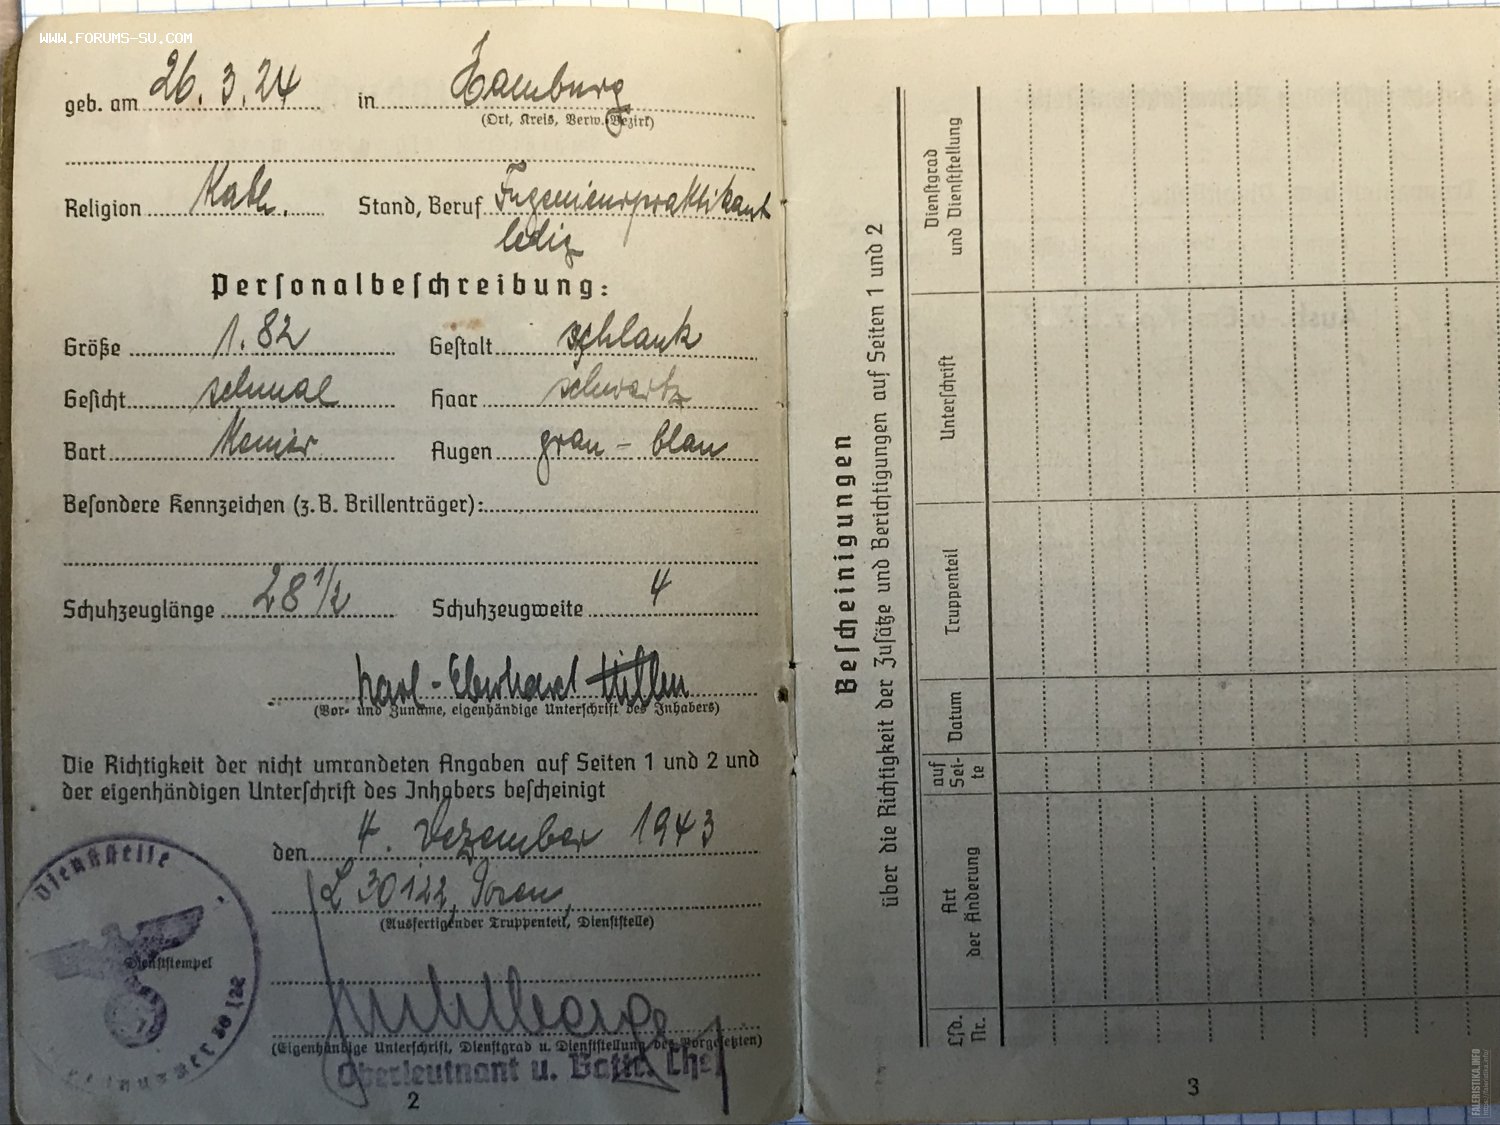 WWW.FORUMS-SU.COM
geb. am 26. 3. 24 in Hamburg
(Ort, Kreis, Verw.-Bezirk)
Religion Kath. Stand, Beruf Ingenieurpraktikant
ledig
Personalbeschreibung:
Größe 1.82 Gestalt schlank
Gesicht schmal Haar schwartz
Bart Keiner Augen grau - blau
Besondere Kennzeichen (z. B. Brillenträger):
Schuhzeuglänge 28 1/2 Schuhzeugweite 4
Karl-Eberhard
(Vor- und Zuname, eigenhändige Unterschrift des Inhabers)
Die Richtigkeit der nicht umrandeten Angaben auf Seiten 1 und 2 und
der eigenhändigen Unterschrift des Inhabers bescheinigt
den 4. Dezember 1943
L 30122,
(Ausfertigender Truppenteil, Dienststelle)
Dienststelle
Dienststempel
Feldpostnummer
(Eigenhändige Unterschrift, Dienstgrad u. Dienststellung des Vorgesetzten)
Oberleutnant u. Battr. Chef
2
Bescheinigungen
über die Richtigkeit der Zusätze und Berichtigungen auf Seiten 1 und 2
Lfd. Nr.
Art der Änderung
auf Sei- te
Datum
Truppenteil
Unterschrift
Dienstgrad und Dienststellung
3
FALERISTIKA.INFO
https://faleristika.info/